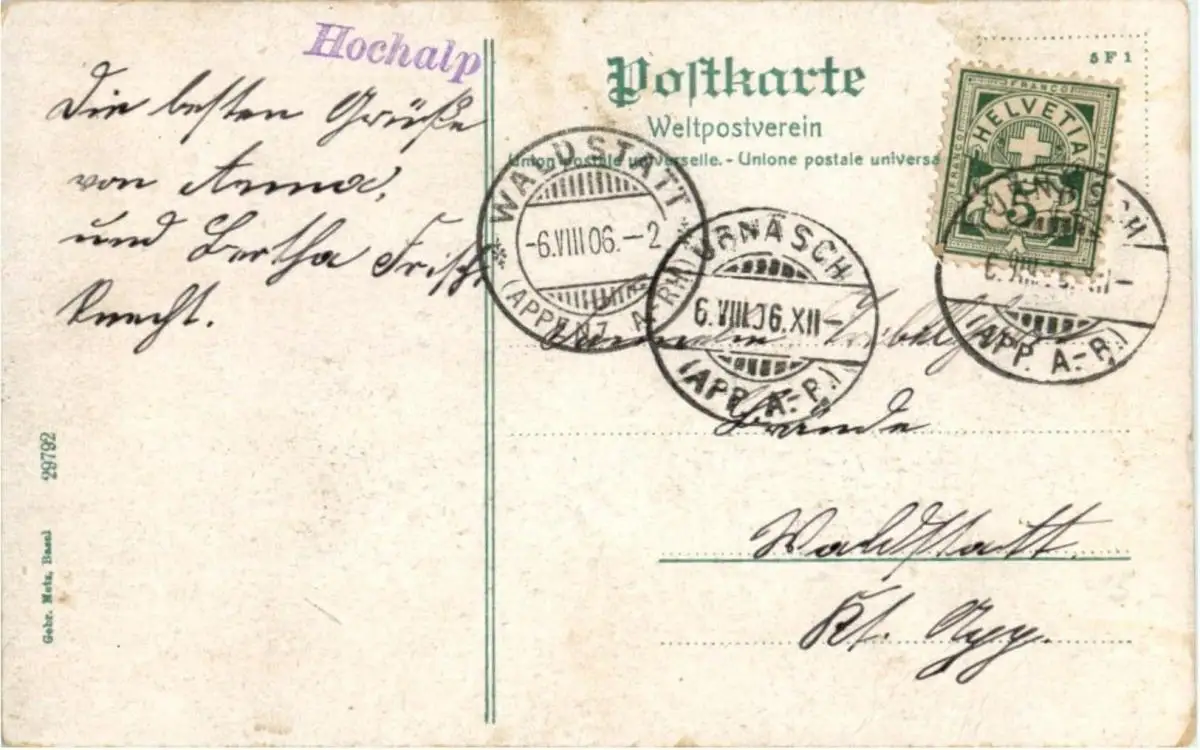 Hochalp
Die besten Grüße
von Anna,
und Bertha Frisch
Knecht.
Postkarte
Weltpostverein
Union postale universelle. - Unione postale universa
5 F 1
FRANCO
HELVETIA
FRANCO
FRANCO
5
WALDSTATT
-6.VIII 06.-2
(APPENZ. A.-RH)
URNÄSCH
6.VIII 06.XII-
(APP. A.-R.)
URNÄSCH
(APP. A.-R.)
Gründe
Waldstatt
Kt. App.
29792
Gebr. Metz, Basel